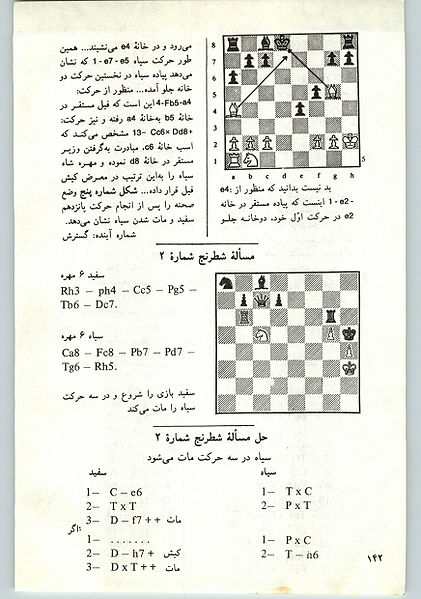 می‌رود و در خانهٔ e4 می‌نشیند... همین
طور حرکت سیاه 1-e7-e5 که نشان
می‌دهد پیاده سیاه در نخستین حرکت دو
خانه جلو آمده... منظور از حرکت:
4-Fb5-a4 این است که فیل مستقر در
خانهٔ b5 به‌خانهٔ a4 رفته و نیز حرکت:
13- Cc6× Dd8+ مشخص می‌کند که
اسب خانهٔ c6، مبادرت به‌گرفتن وزیر
مستقر در خانهٔ d8 نموده و مهره شاه
سیاه را به‌این ترتیب در معرض کیش
فیل قرار داده... شکل شماره پنج وضع
صحنه را پس از انجام حرکت پانزدهم
سفید و مات شدن سیاه نشان می‌دهد.
شماره آینده: گسترش
8
7
6
5
4
3
2
1
a b c d e f g h
5
بد نیست بدانید که منظور از e4:
1-e2- اینست که پیاده مستقر در خانه
e2 در حرکت اوّل خود، دوخانه جلو
مسألهٔ شطرنج شمارهٔ ۲
سفید ۶ مهره
Rh3 – ph4 – Cc5 – Pg5 –
Tb6 – Dc7.
سیاه ۶ مهره
Ca8 – Fc8 – Pb7 – Pd7 –
Tg6 – Rh5.
سفید بازی را شروع و در سه حرکت
سیاه را مات می‌کند
حل مسألهٔ شطرنج شمارهٔ ۲
سیاه در سه حرکت مات می‌شود
سفید سیاه
1– C – e6 1– T x C
2– T x T 2– P x T
3– D – f7 ++ مات
اگر:
1– . . . . . . . 1– P x C
2– D – h7 + کیش 2– T – h6
3– D x T ++ مات
۱۴۲